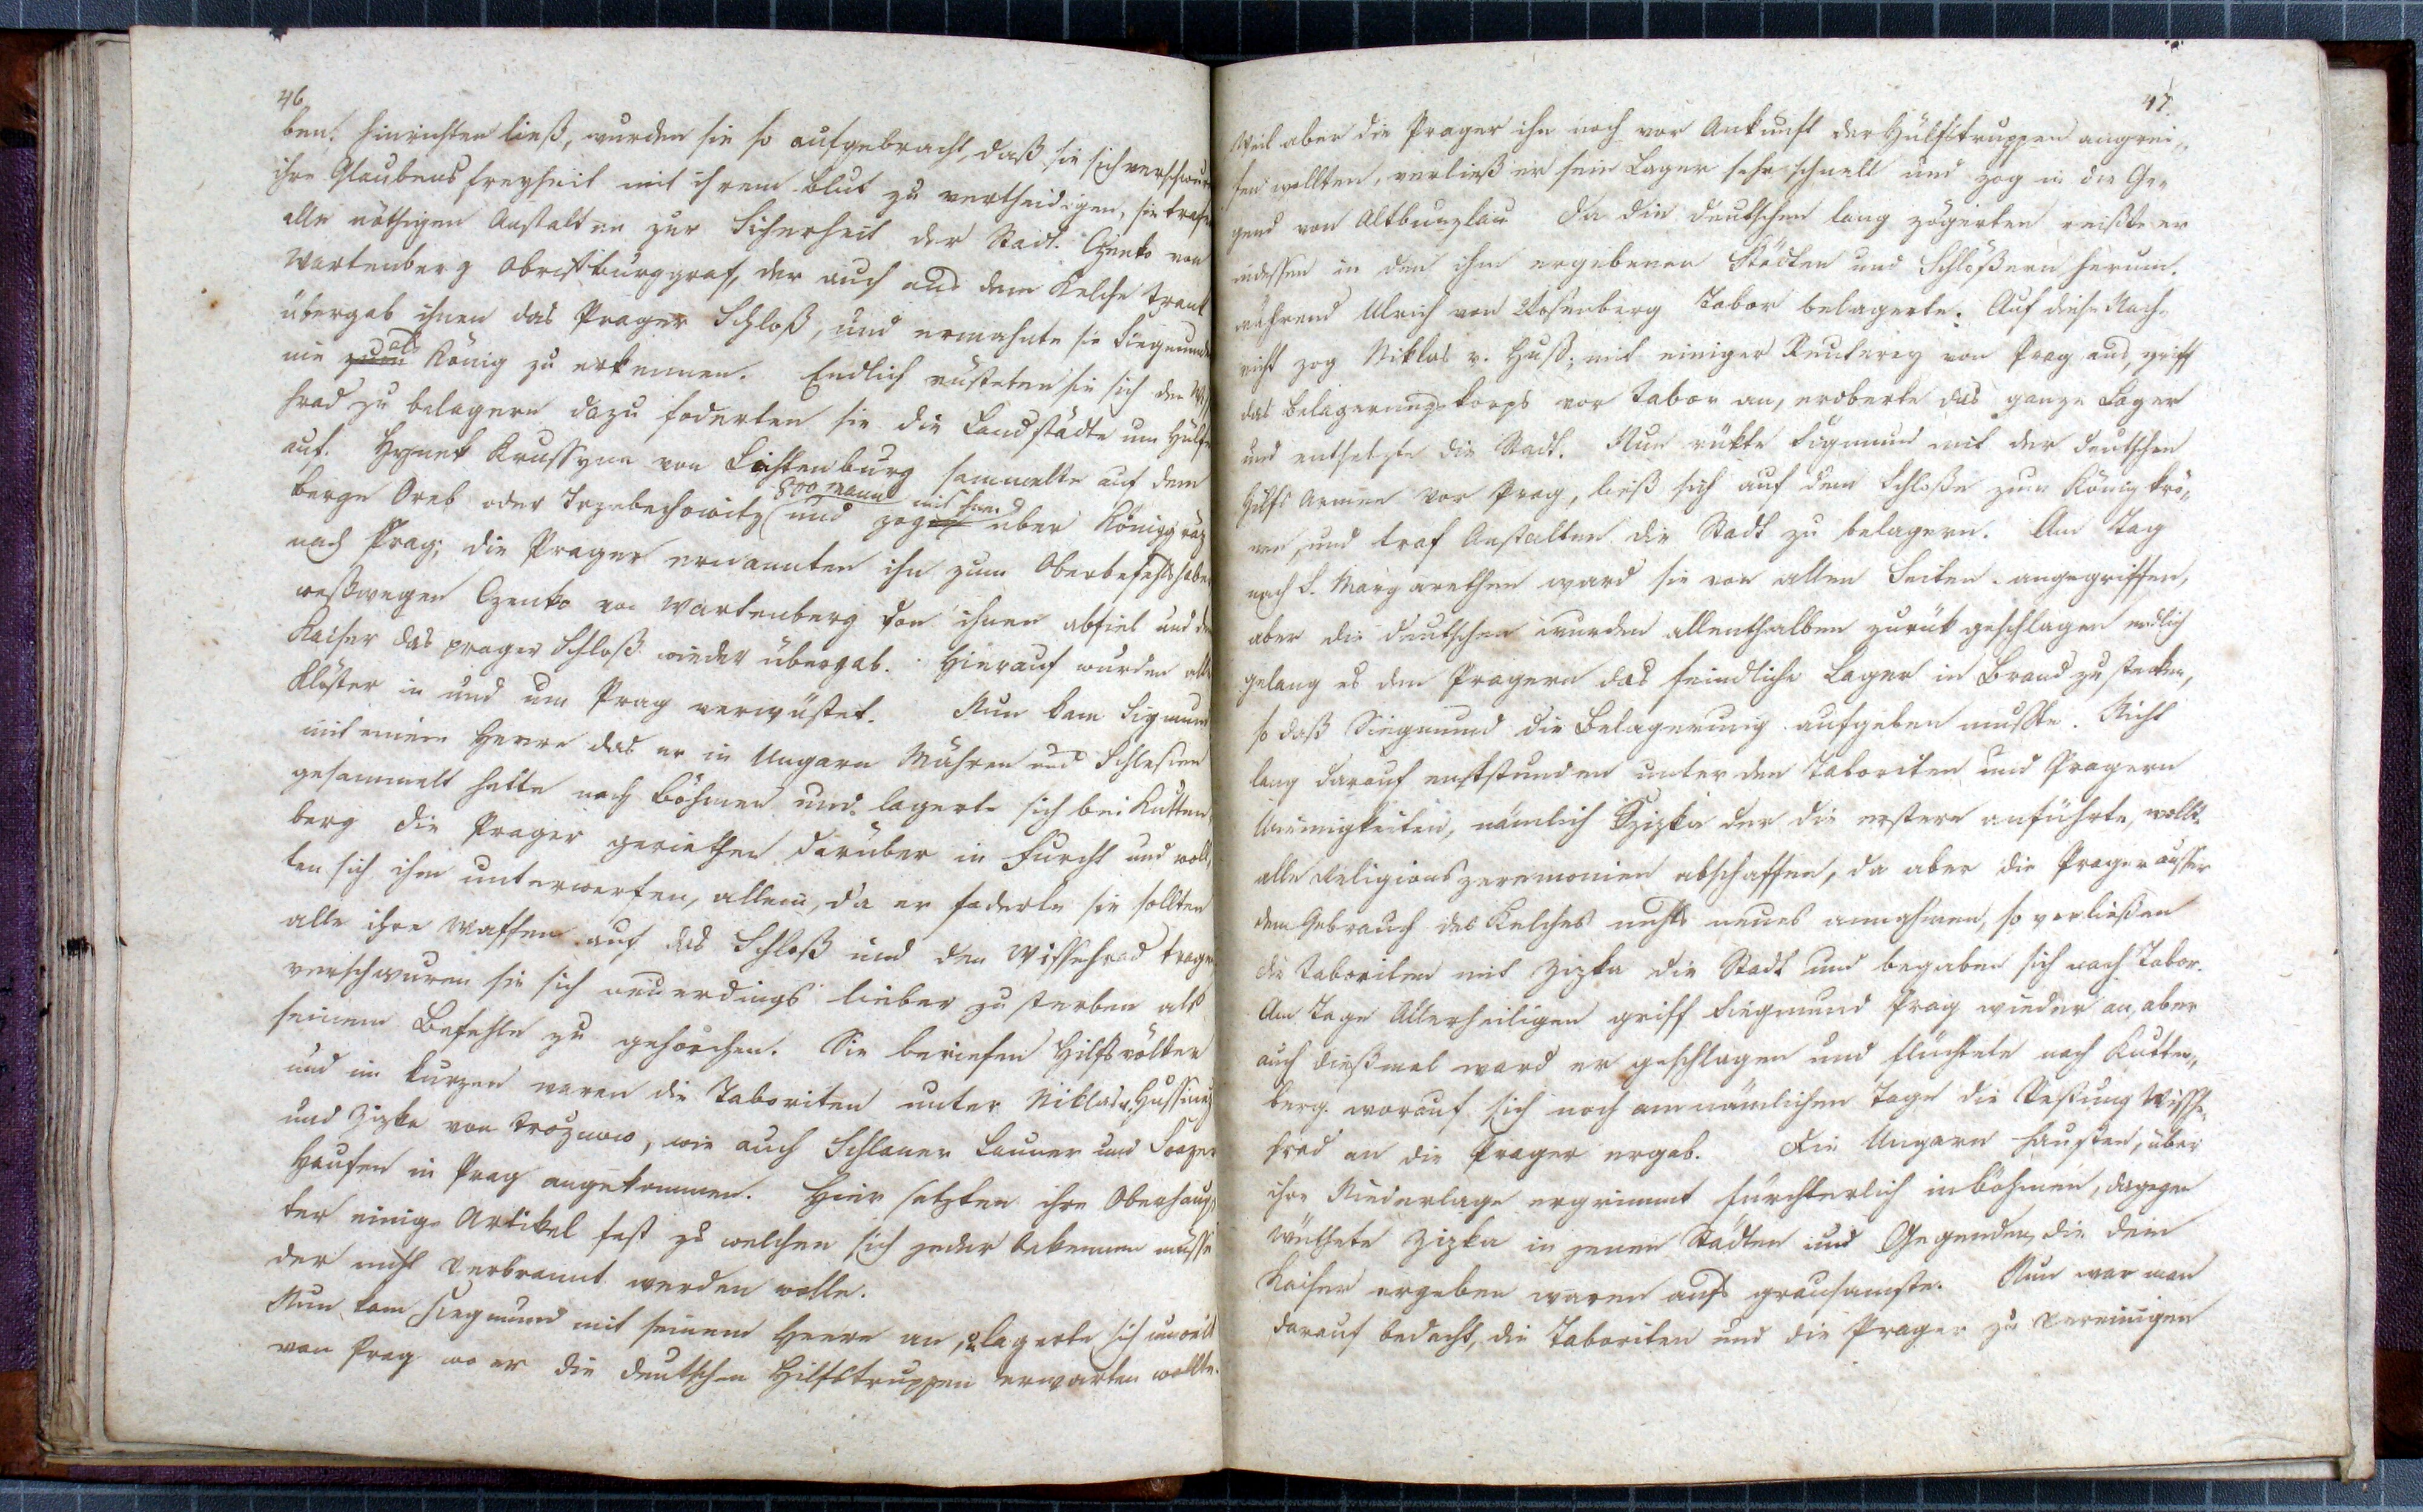 46
ben: hinrichten ließ, wurden sie so aufgebracht, daß sie sich verschwur
ihre Glaubensfreyheit mit ihrem Blut zu vertheidigen, sie trafe
alle nöthigen Anstalten zur Sicherheit der Stadt. Czenko von
Wartenberg Obristburggraf, der auch aus dem Kelche trank
übergab ihnen das Prager Schloß, und ermahnte sie Siegmunde
als
nie zum König zu erkennen. Endlich rüsteten sie sich den Wiss
hrad zu belagern dazu foderten sie die Landstädte um Hülfe
auf. Hynek Krussyna von Lichtenburg sammelte auf dem
800 Mann mit ihnen
Berge Oreb oder Trzebechowitz und zog über Königgräz
nach Prag; die Prager ernannten ihn zum Oberbefehlshaber
weßwegen Czenko von Wartenberg von ihnen abfiel und dem
Kaiser das prager Schloß wieder übergab. Hierauf wurden alle
Klöster in und um Prag verwüstet. Nun kam Sigmund
mit einem Heere das er in Ungarn Mähren und Schlesien
gesammelt hatte nach Böhmen und lagerte sich bei Kutten,
berg die Prager geriethen darüber in Furcht und woll,
ten sich ihm unterwerfen, allein, da er foderte sie sollten
alle ihre Waffen auf das Schloß und den Wissehrad tragen
verschwuren sie sich neuerdings lieber zu sterben als
seinem Befehle zu gehorchen. Sie beriefen Hilfsvölker
und in kurzen waren die Taboriten unter Niklas v. Hussinez
und Zizka von Troznow, wie auch Schlaner Launer und Saazer
Haufen in Prag angekommen. Hier setzten ihre Oberhäup,
ter einige Artikel fest zu welchen sich jeder bekennen müsse
der nicht verbrannt werden wolle.
Nun kam Siegmund mit seinem Heere an, lagerte sich unweit
von Prag wo er die deutschen Hilfstruppen erwarten wollte.
47
Weil aber die Prager ihn noch vor Ankunft der Hülfstruppen angrei,,
fen wollten, verließ er sein Lager sehr schnell und zog in die Ge,
gend von Altbunzlau. Da die deutschen lang zögerten reißte er
indessen in den ihm ergebenen Städten und Schlößern herum.
während Ulrich von Rosenberg Tabor belagerte. Auf diese Nach,
richt zog Niklas v. Huß: mit einiger Reuterey von Prag aus, griff
das Belagerungskorps vor Tabor an, eroberte das ganze Lager
und entsetzte die Stadt. Nun rükte Sigmund mit der deutschen
Hilfs Armee vor Prag, ließ sich auf dem Schloße zum König krö,
nen, und traf Anstalten die Stadt zu belagern. Am Tag
nach S. Margarethen ward sie von allen Seiten angegriffen,
aber die deutschen wurden allenthalben zurük geschlagen endlich
gelang es den Pragern das feindliche Lager in Brand zu stecken,
so daß Siegmund die Belagerung aufgeben mußte. Nicht
lang darauf entstunden unter den Taboriten und Pragern
Uneinigkeiten, nämlich Zizka der die erstern anführte, wollt
alle Religionszeremonien abschaffen, da aber die Prager ausser
dem Gebrauch des Kelches nichts neues annahmen, so verließen
die Taboriten mit Zizka die Stadt und begaben sich nach Tabor.
Am Tage Allerheiligen griff Siegmund Prag wieder an, aber
auch dießmal ward er geschlagen und flüchtete nach Kutten,,
berg. worauf sich noch am nämlichen Tage die Vestung Wisse,
hrad an die Prager ergab. Die Ungarn hausten, über
ihre Niederlage ergrimmt fürchterlich in Böhmen, dagegen
wüthete Zizka in jenen Städten und Gegenden, die dem
Kaiser ergeben waren aufs grausamste. Nun war man
darauf bedacht, die Taboriten und die Prager zu vereinigen